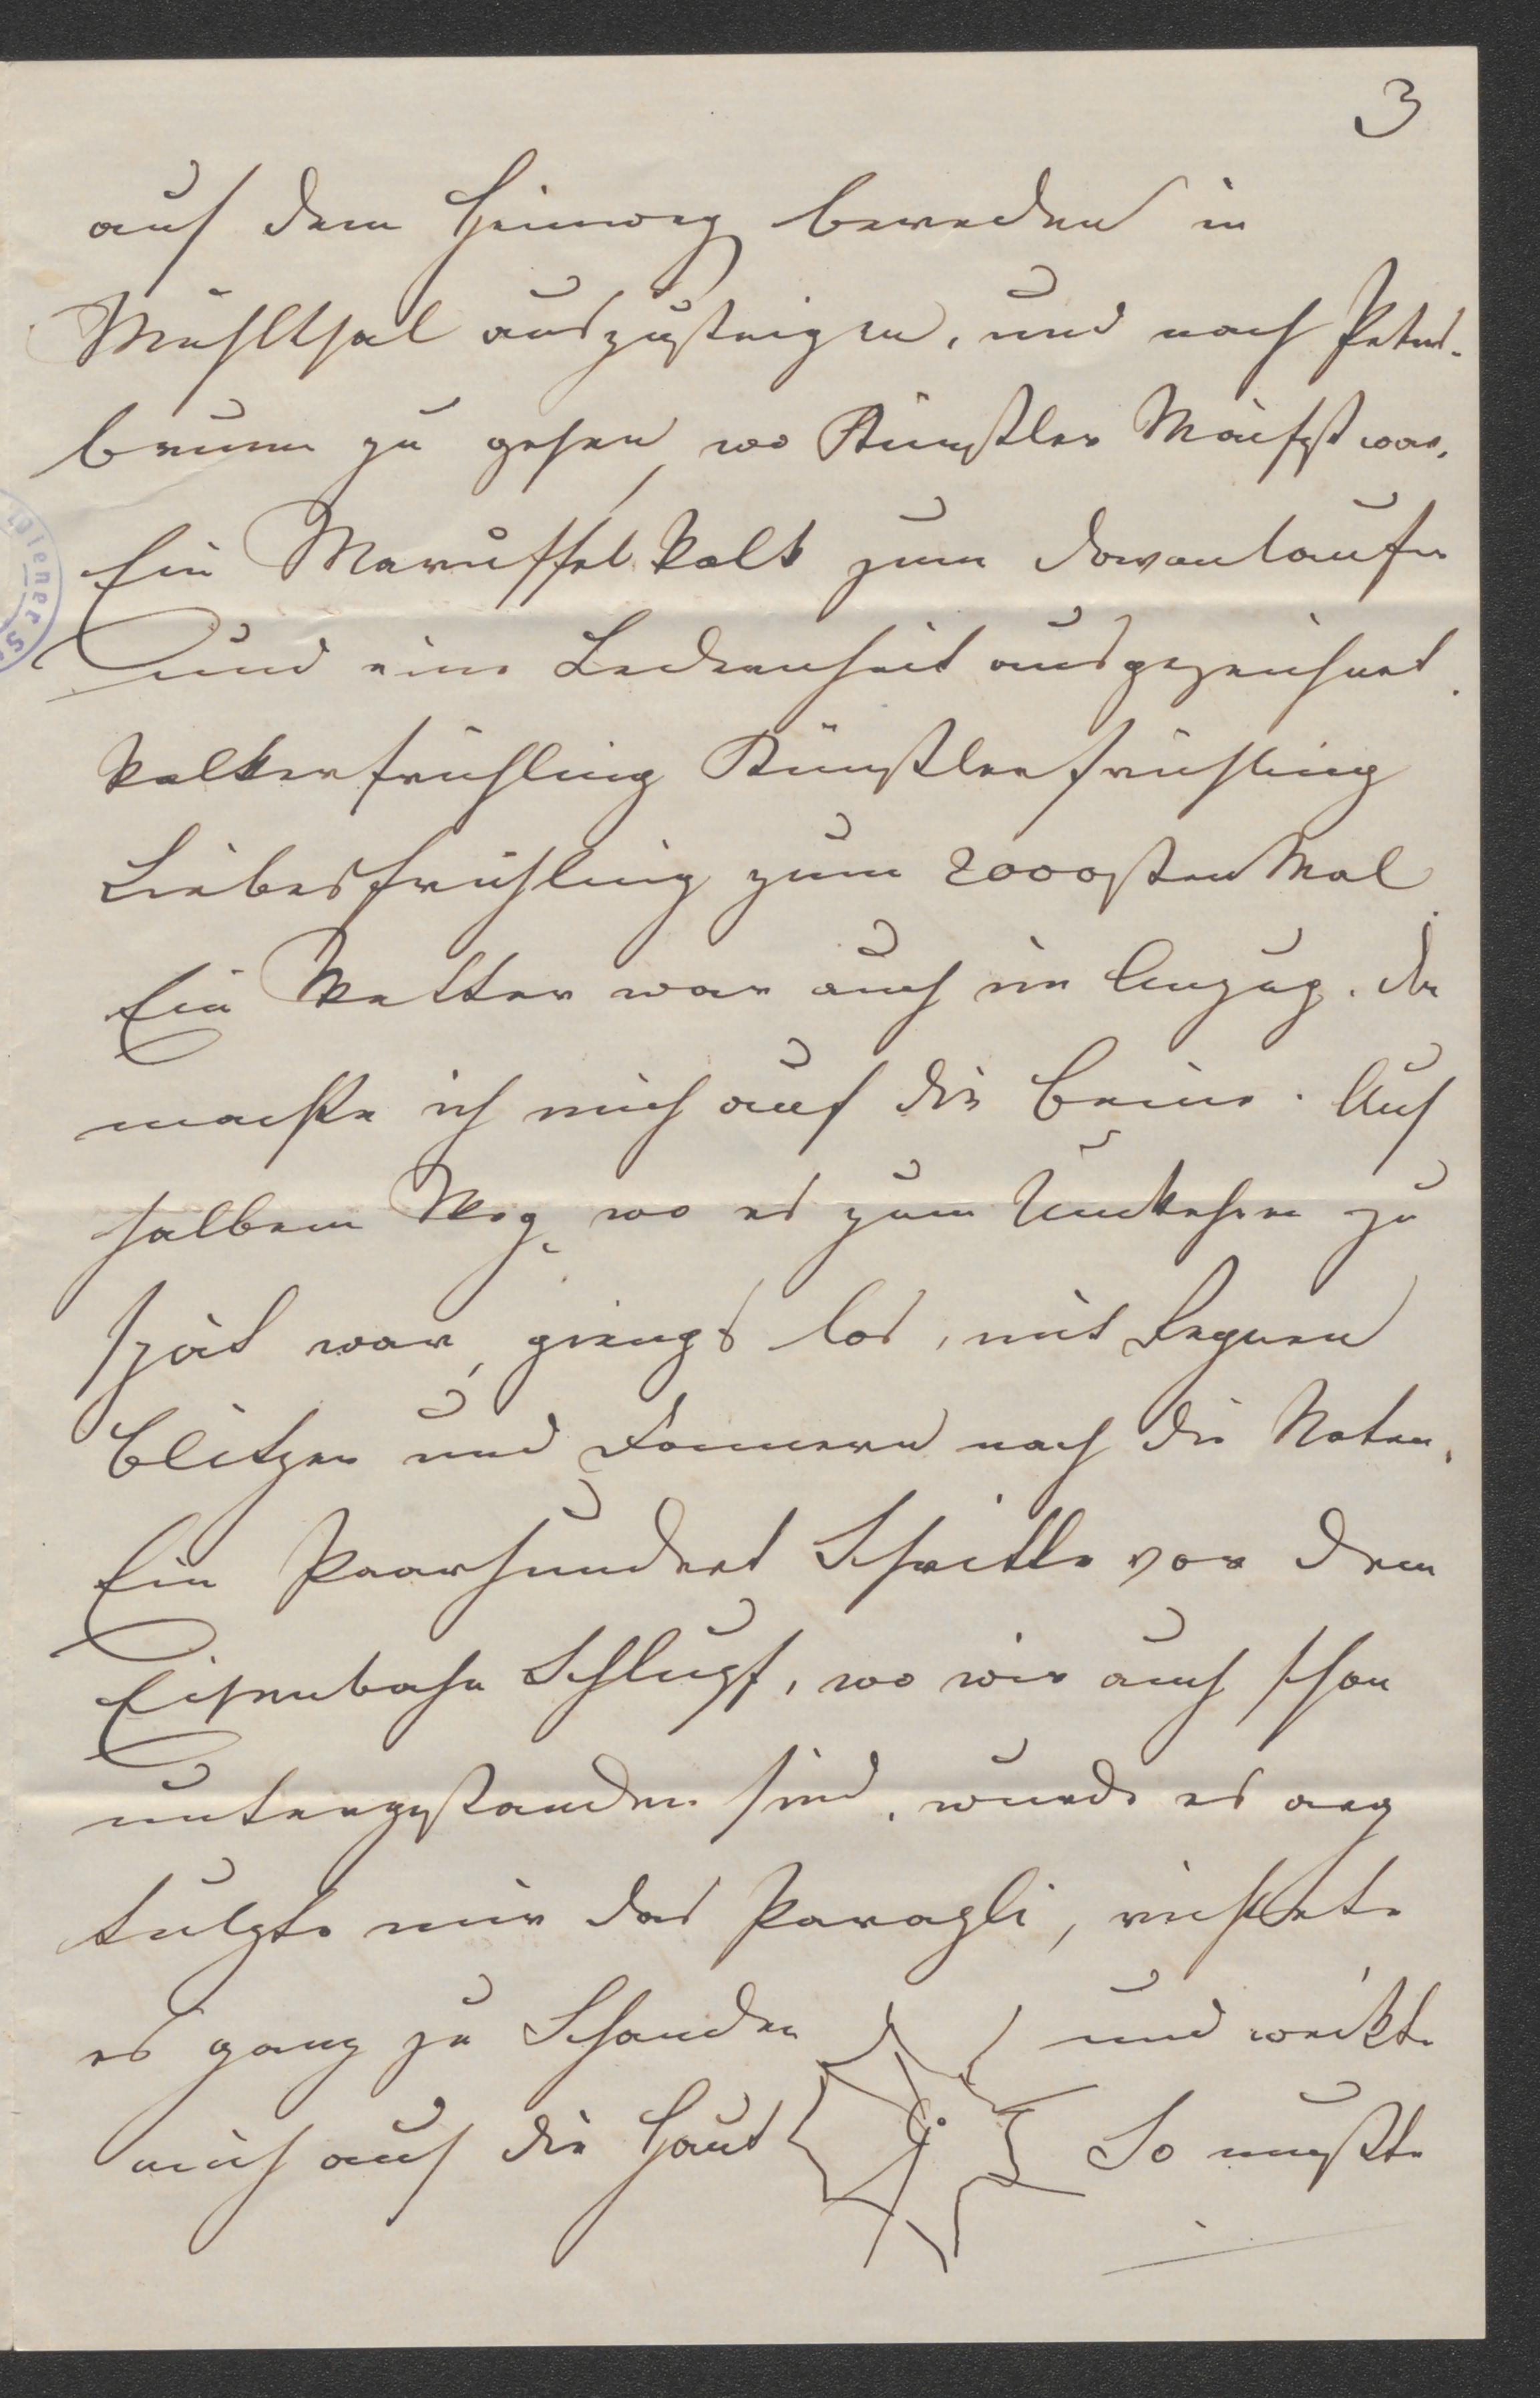 3
auf dem Heimweg bereden in
Mühlthal auszusteigen, und nach Peters-
brunn zu gehen, wo Künstler Maifest war.
Ein Maruffel Volk zum Davonlaufen
und eine Ledernheit ausgezeichnet.
Völkerfrühling Künstlerfrühling
Liebesfrühling zum 2000sten Mal.
Ein Wetter war auch im Anzug. da
machte ich mich auf die Beine. Auf
halbem Weg, wo es zum Umkehren zu
spät war, giengs los, mit Regnen
Blitzen und Donnern nach die Noten.
Ein Paarhundert Schritte vor dem
Eisenbahn Schlupf, wo wir auch schon
untergestanden sind, wurde es arg
stülpte mir das Parapli, richtete
es ganz zu Schanden und weikte
mich auf die Haut So mußte
Wiener S